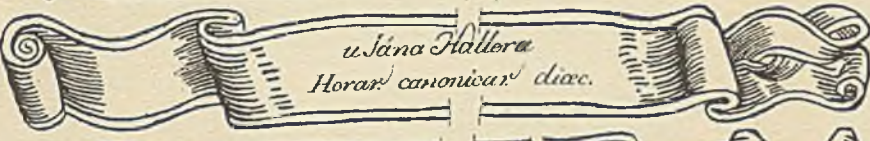 u Jána Hallera
Horar. canonicar. diœc.